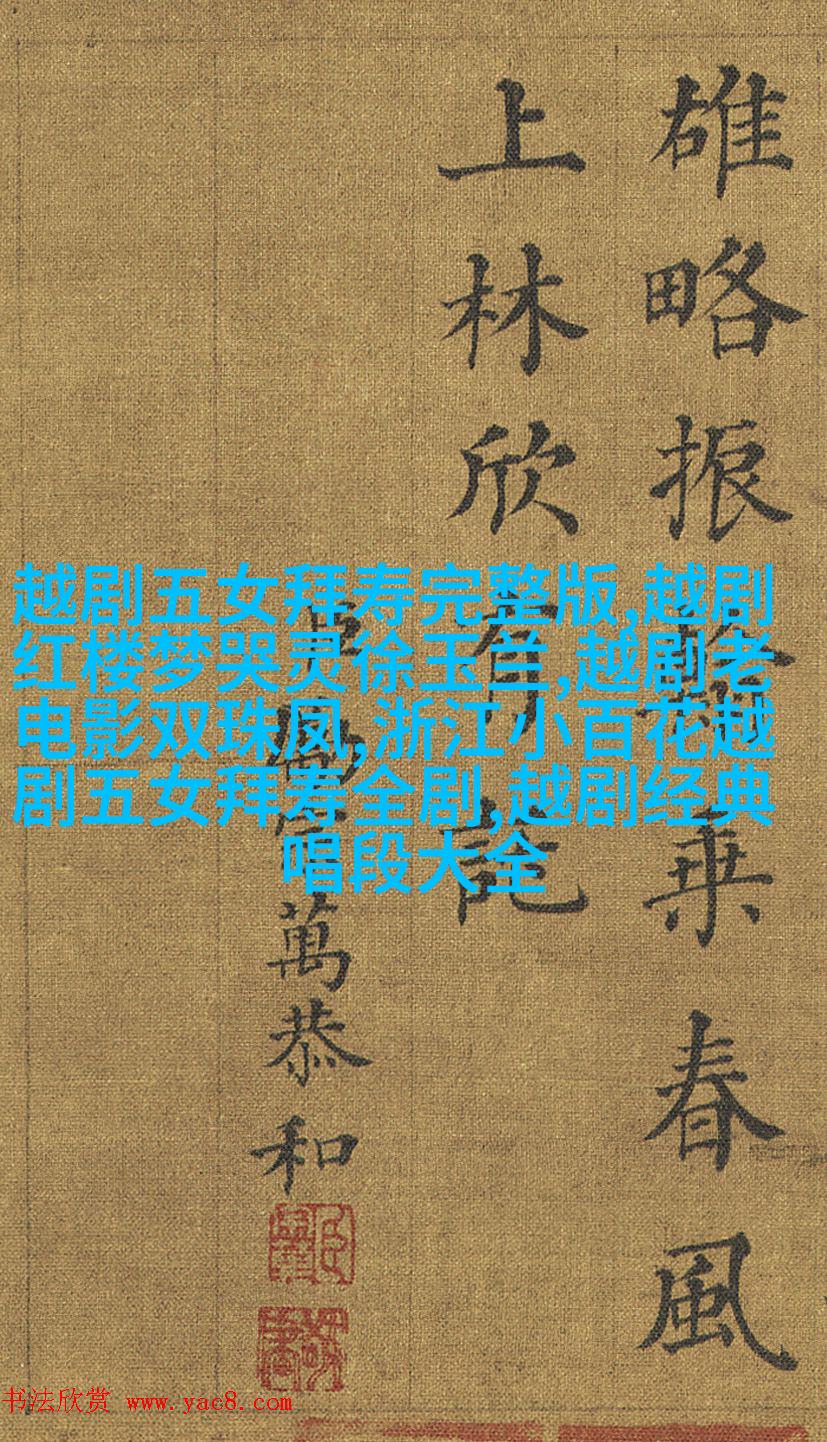 雄略振乗春風
上林欣有託
臣勵宗萬恭和
越剧五女拜寿完整版,越剧
红楼梦哭灵徐玉兰,越剧老
电影双珠凤,浙江小百花越
剧五女拜寿全剧,越剧经典
唱段大全
书法欣赏 www.yac8.com